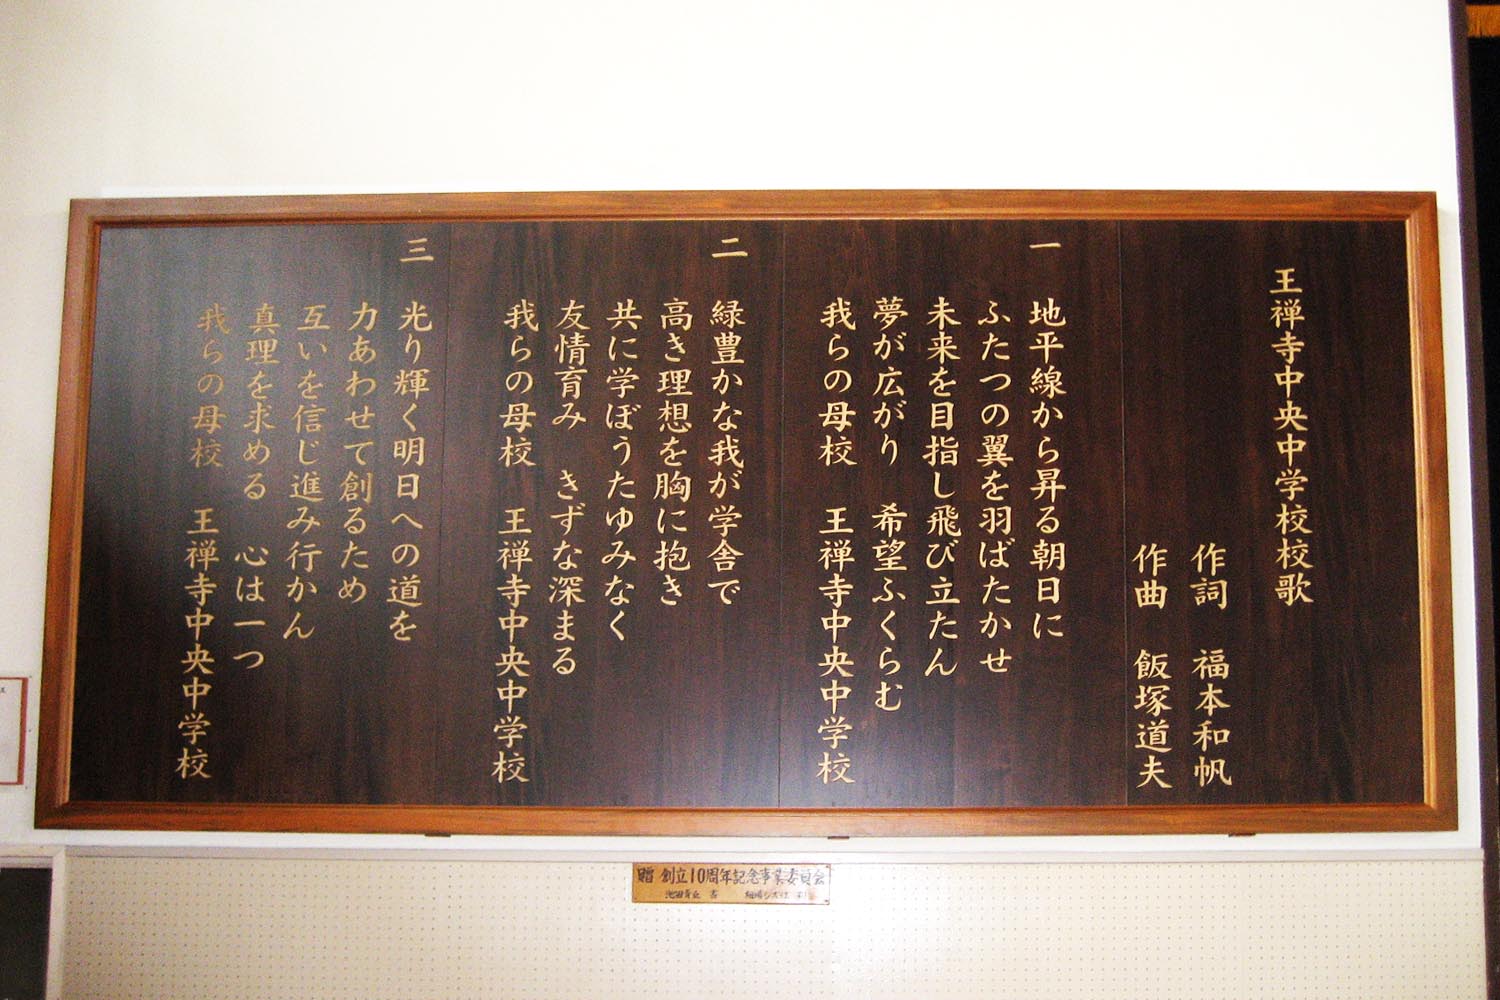 王禅寺中央中学校校歌
作詞　福本和帆
作曲　飯塚道夫
一
地平線から昇る朝日に
ふたつの翼を羽ばたかせ
未来を目指し飛び立たん
夢が広がり　希望ふくらむ
我らの母校　王禅寺中央中学校
二
緑豊かな我が学舎で
高き理想を胸に抱き
共に学ぼうたゆみなく
友情育み　きずな深まる
我らの母校　王禅寺中央中学校
三
光り輝く明日への道を
力あわせて創るため
互いを信じ進み行かん
真理を求める　心は一つ
我らの母校　王禅寺中央中学校
贈 創立10周年記念事業委員会